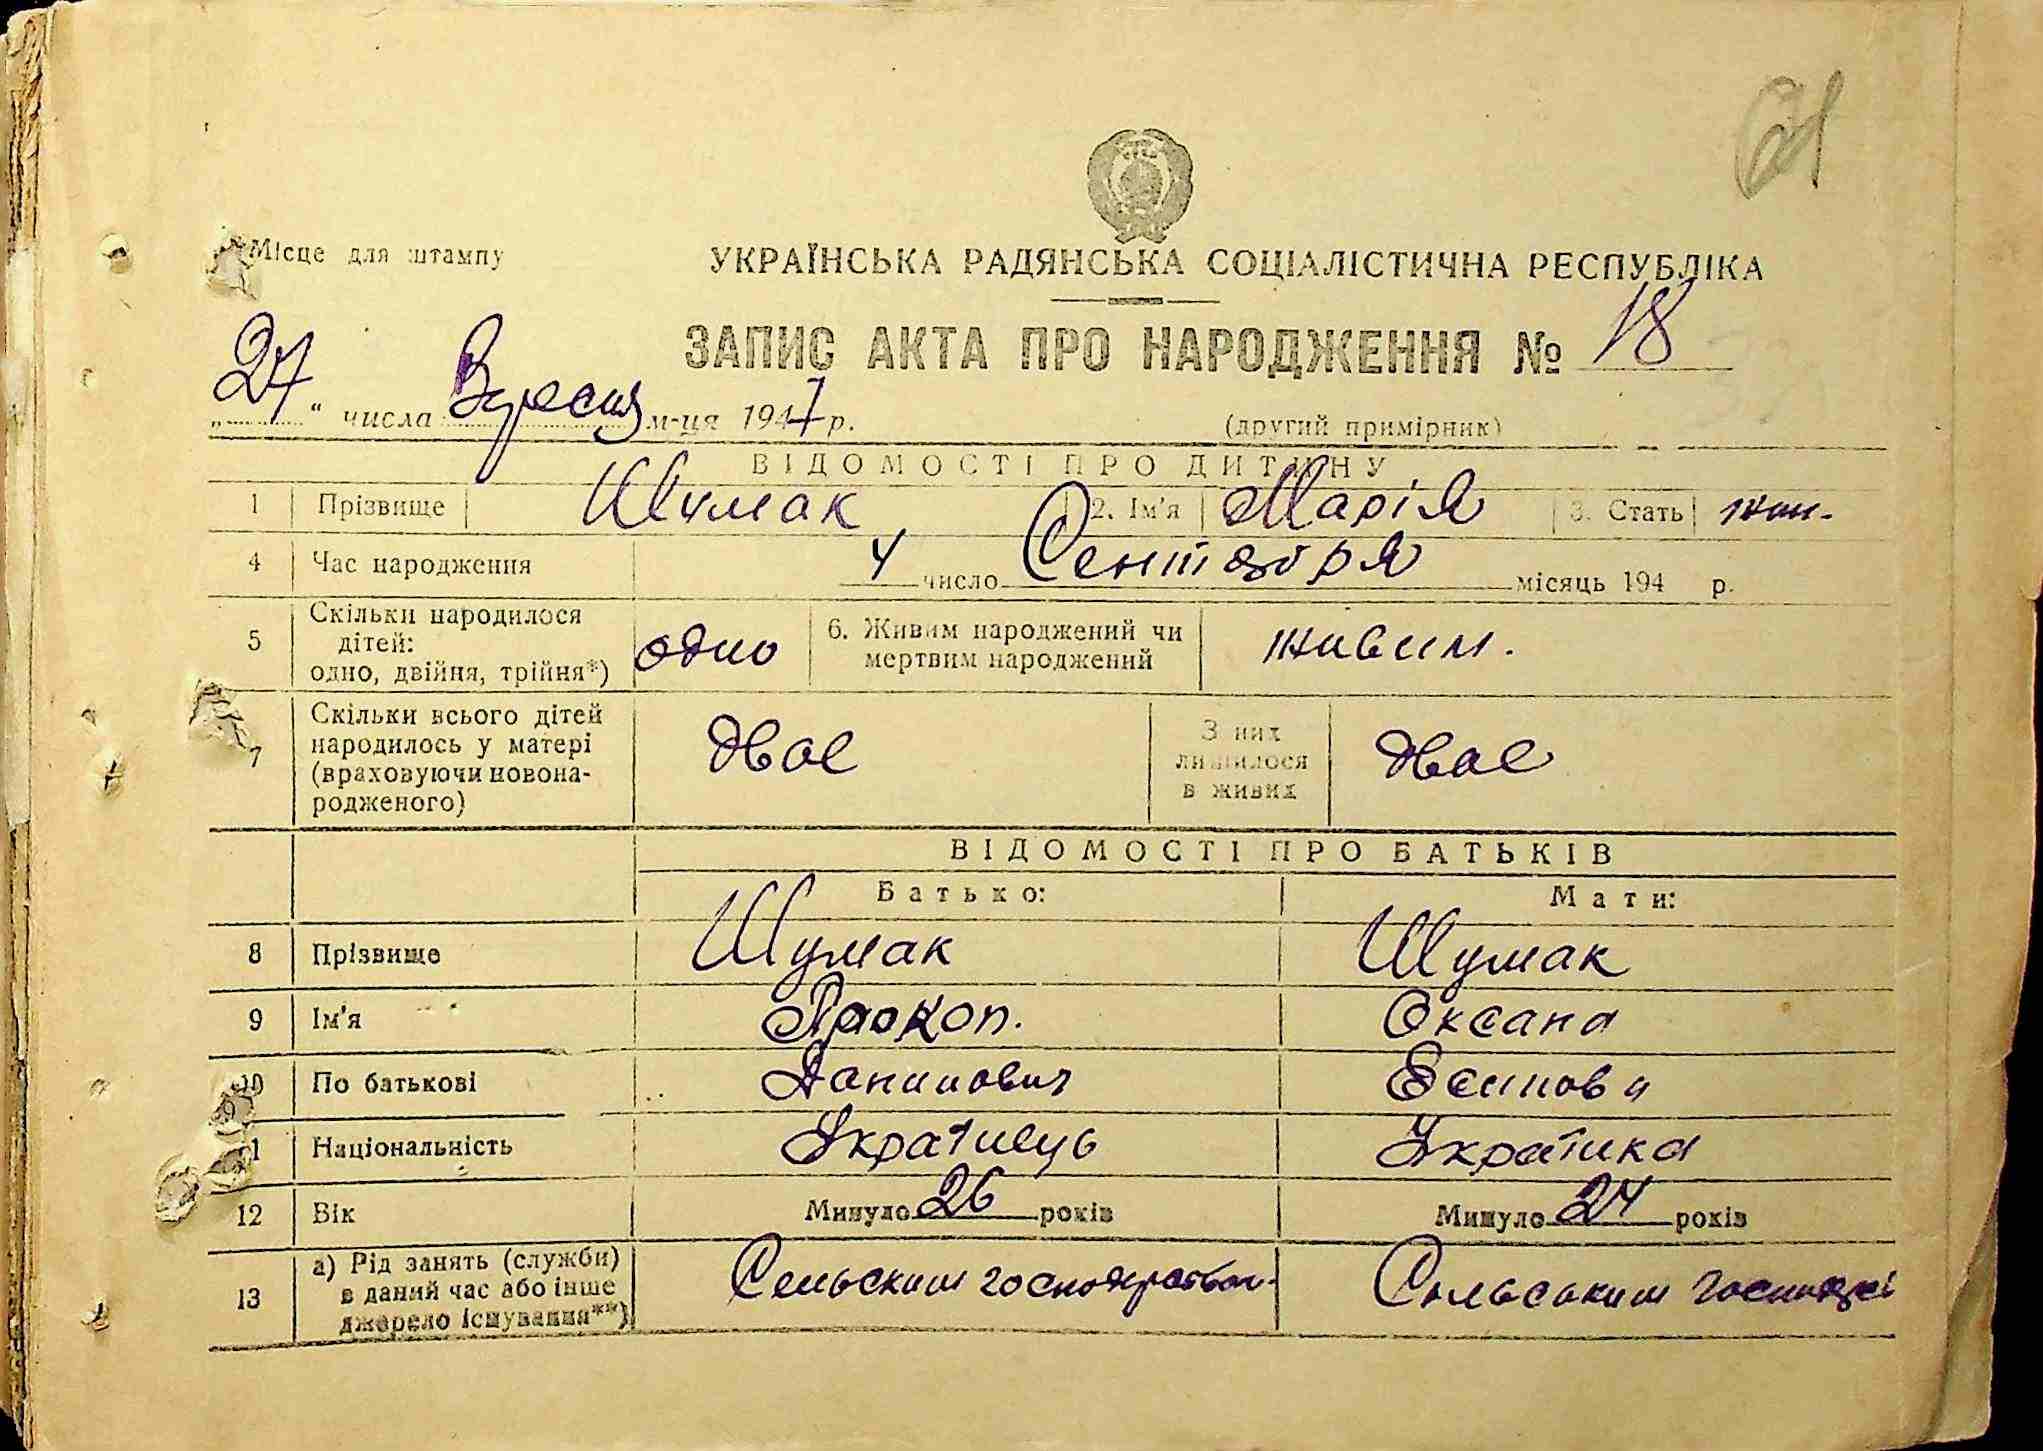 21
Місце для штампу
УКРАЇНСЬКА РАДЯНСЬКА СОЦІАЛІСТИЧНА РЕСПУБЛІКА
ЗАПИС АКТА ПРО НАРОДЖЕННЯ № 18
„27“ числа Вересня м-ця 1947 р.
(другий примірник)
ВІДОМОСТІ ПРО ДИТИНУ
1 Прізвище Шумак 2. Ім'я Марія 3. Стать жін.
4 Час народження 4 число Сентября місяць 194 р.
5 Скільки народилося дітей: одно, двійня, трійня*) одно 6. Живим народжений чи мертвим народжений живим.
7 Скільки всього дітей народилось у матері (враховуючи новонародженого) двое З них лишилося в живих двое
ВІДОМОСТІ ПРО БАТЬКІВ
Батько: Мати:
8 Прізвище Шумак Шумак
9 Ім'я Прокоп. Оксана
10 По батькові Данилович Есипова
11 Національність Украінець Украінка
12 Вік Минуло 26 років Минуло 24 років
13 а) Рід занять (служби) в даний час або інше джерело існування**) Сельским Сельським